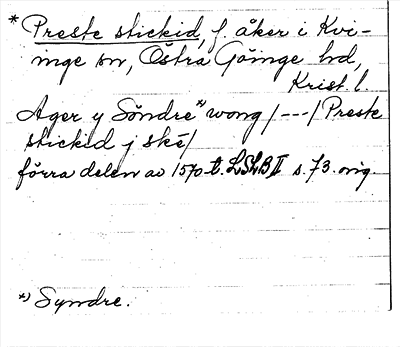 * Preste stickid, f. åker i Kvi-
inge sn, Östra Göinge hd,
Krist. l.
Ager y Söndre *) wong /---/ Preste
stickid j ské/
förra delen av 1570-t. LSLB II s. 73. orig.
*) Syndre.